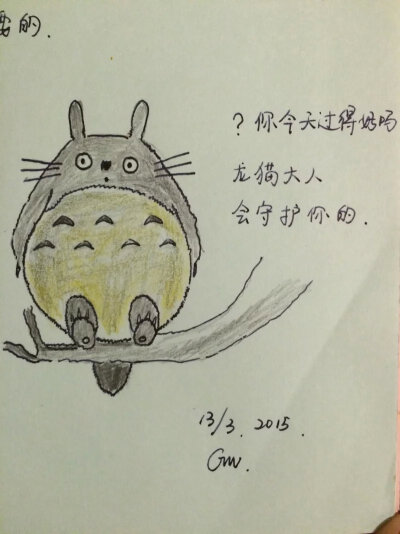 的.
? 你今天过得好吗
龙猫大人
会守护你的.
13/3. 2015.